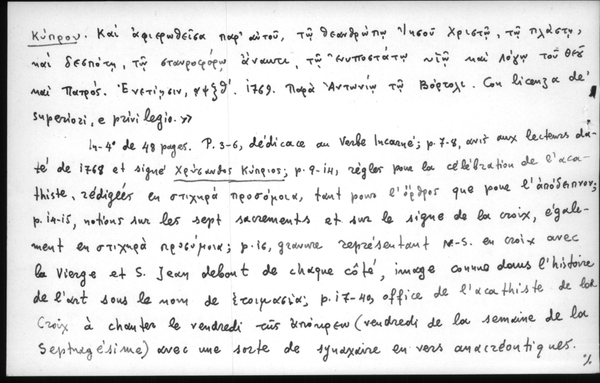 Κύπρου. Καὶ ἀφιερωθεῖσα παρ' αὐτοῦ, τῷ θεανθρώπῳ Ἰησοῦ Χριστῷ, τῷ πλάστῃ,
καὶ δεσπότῃ, τῷ σταυροφόρῳ ἄνακτι, τῷ ἐνυποστάτῳ υἱῷ καὶ λόγῳ τοῦ θεοῦ
καὶ Πατρός. Ἐνετίῃσιν, 1769. Παρὰ Ἀντωνίῳ τῷ Βόρτολι. Con licenza de'
superiori, e privilegio.»
In-4° de 48 pages. P. 3-6, dédicace au Verbe Incarné; p. 7-8, avis aux lecteurs da-
té de 1768 et signé Χρύσανθος Κύπριος; p. 9-14, règles pour la célébration de l'aca-
thiste, rédigées en στιχηρὰ προσόμοια, tant pour l'ὄρθρος que pour l'ἀπόδειπνον;
p. 14-15, notions sur les sept sacrements et sur le signe de la croix, égale-
ment en στιχηρὰ προσόμοια; p. 16, gravure représentant N.-S. en croix avec
la Vierge et S. Jean debout de chaque côté, image connue dans l'histoire
de l'art sous le nom de ἑτοιμασία; p. 17-40, office de l'acathiste de la
Croix à chanter le vendredi τῆς ἀπόκρεω (vendredi de la semaine de la
Septuagésime) avec une sorte de synaxaire en vers anacréontiques.